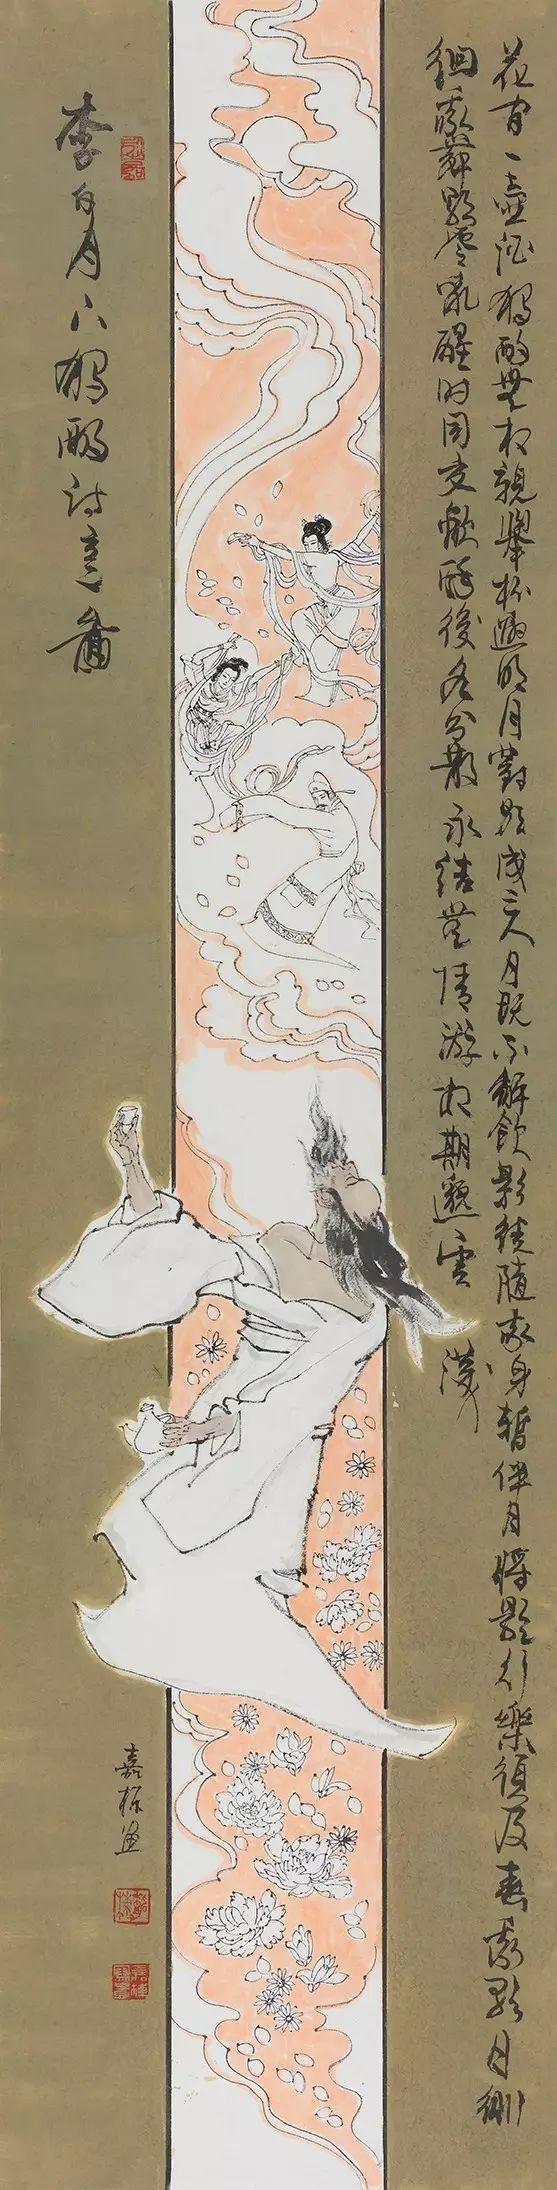 花間一壺酒獨酌無相親舉杯邀明月對影成三人月既不解飲影徒隨我身暫伴月將影行樂須及春我歌月徘
徊我舞影零亂醒時同交歡醉後各分散永結無情游相期邈雲漢
李白月下獨酌詩意圖